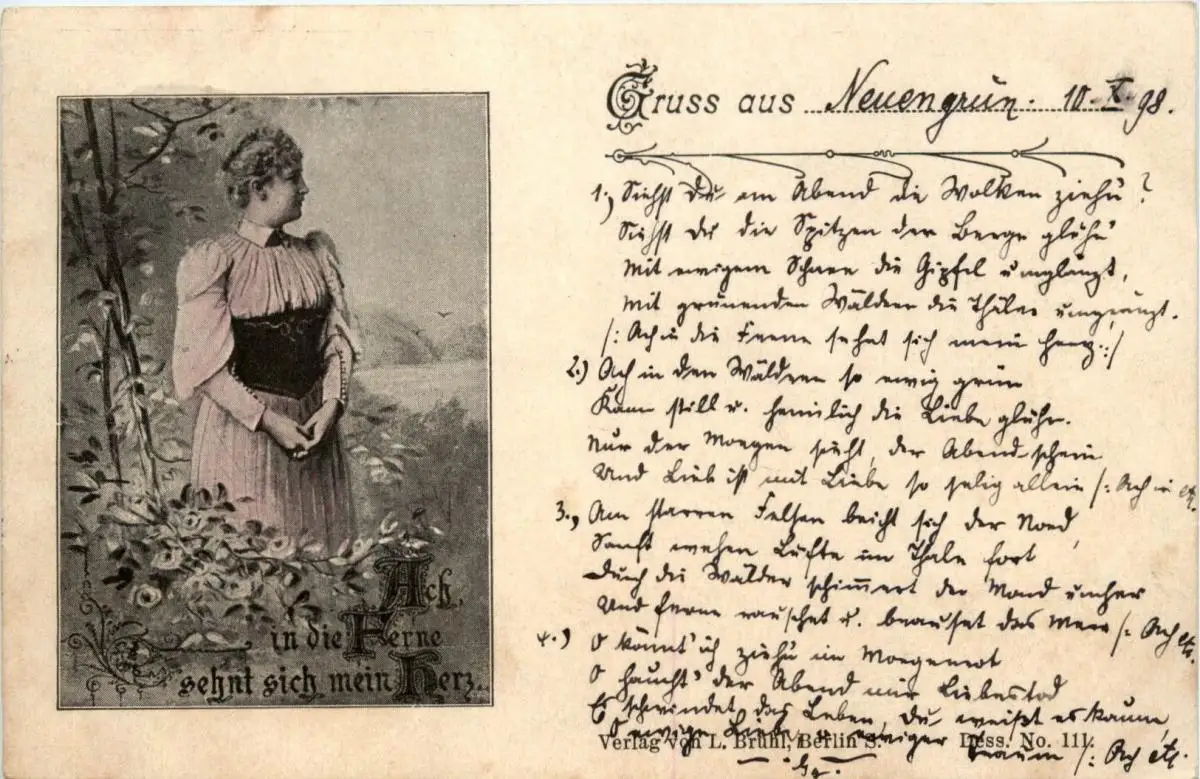 Ach,
in die Ferne
sehnt sich mein Herz.
Gruss aus Neuengrün. 10. X. 98.
1.) Siehst Du am Abend die Wolken ziehn?
Siehst du die Spitzen der Berge glühn
Mit ewigem Schnee die Gipfel umglänzt,
Mit grünenden Wäldern die Thäler umgränzt.
/: Ach in die Ferne sehnt sich mein Herz :/
2.) Ach in den Wäldern so ewig grün
Kann still u. heimlich die Liebe glühn.
Nur der Morgen sieht, der Abendschein
Und Lieb ist mit Liebe so selig allein /: Ach in etc.
3.) Am starren Felsen bricht sich der Nord,
Sanft wehen Lüfte im Thale fort
Durch die Wälder schimmert der Mond umher
Und ferne rauschet u. brauset das Meer /: Ach etc.
4.) O könnt' ich ziehn im Morgenrot
O haucht' der Abend mir Liebestod
Es schwindet das Leben, Du weißt es kaum,
O ewige Liebe, ewiger Traum /: Ach etc.
Verlag von L. Brühl, Berlin S. Dess. No. 111.